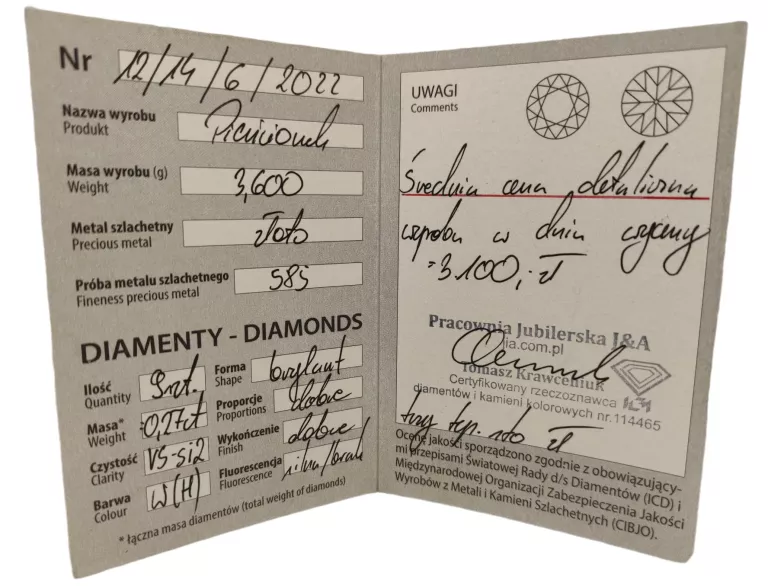 Nr 12/14/6/2022
Nazwa wyrobu Pierścionek
Produkt
Masa wyrobu (g) 3,600
Weight
Metal szlachetny złoto
Precious metal
Próba metalu szlachetnego 585
Fineness precious metal
DIAMENTY - DIAMONDS
Ilość 9szt.
Quantity
Masa* 0,27ct
Weight
Czystość VS-si2
Clarity
Barwa W(H)
Colour
Forma brylant
Shape
Proporcje dobre
Proportions
Wykończenie dobre
Finish
Fluorescencja silna/brak
Fluorescence
* łączna masa diamentów (total weight of diamonds)
UWAGI
Comments
Średnia cena detaliczna
wyrobu w dniu wyceny
=3.100,- zł
Pracownia Jubilerska J&A
ia.com.pl
Tomasz Krawceniuk
Certyfikowany rzeczoznawca
diamentów i kamieni kolorowych nr.114465
trzy tys. sto zł
Ocenę jakości sporządzono zgodnie z obowiązujący-
mi przepisami Światowej Rady d/s Diamentów (ICD) i
Międzynarodowej Organizacji Zabezpieczenia Jakości
Wyrobów z Metali i Kamieni Szlachetnych (CIBJO).